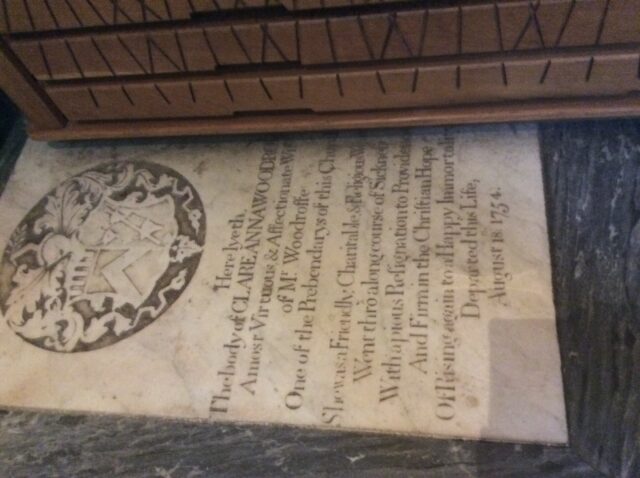 Here lyeth
The body of CLARE ANNA WOODRO
A most Virtuous & Affectionate Wif
of Mr. Woodroffe
One of the Prebendarys of this Chur
She was a Friendly, Charitable & Religious W
Went thro' a long course of Sicknes
With a pious Resignation to Providen
And Firm in the Christian Hope
Of Rising again to a Happy Immortali
Departed this Life,
August 18. 1754.